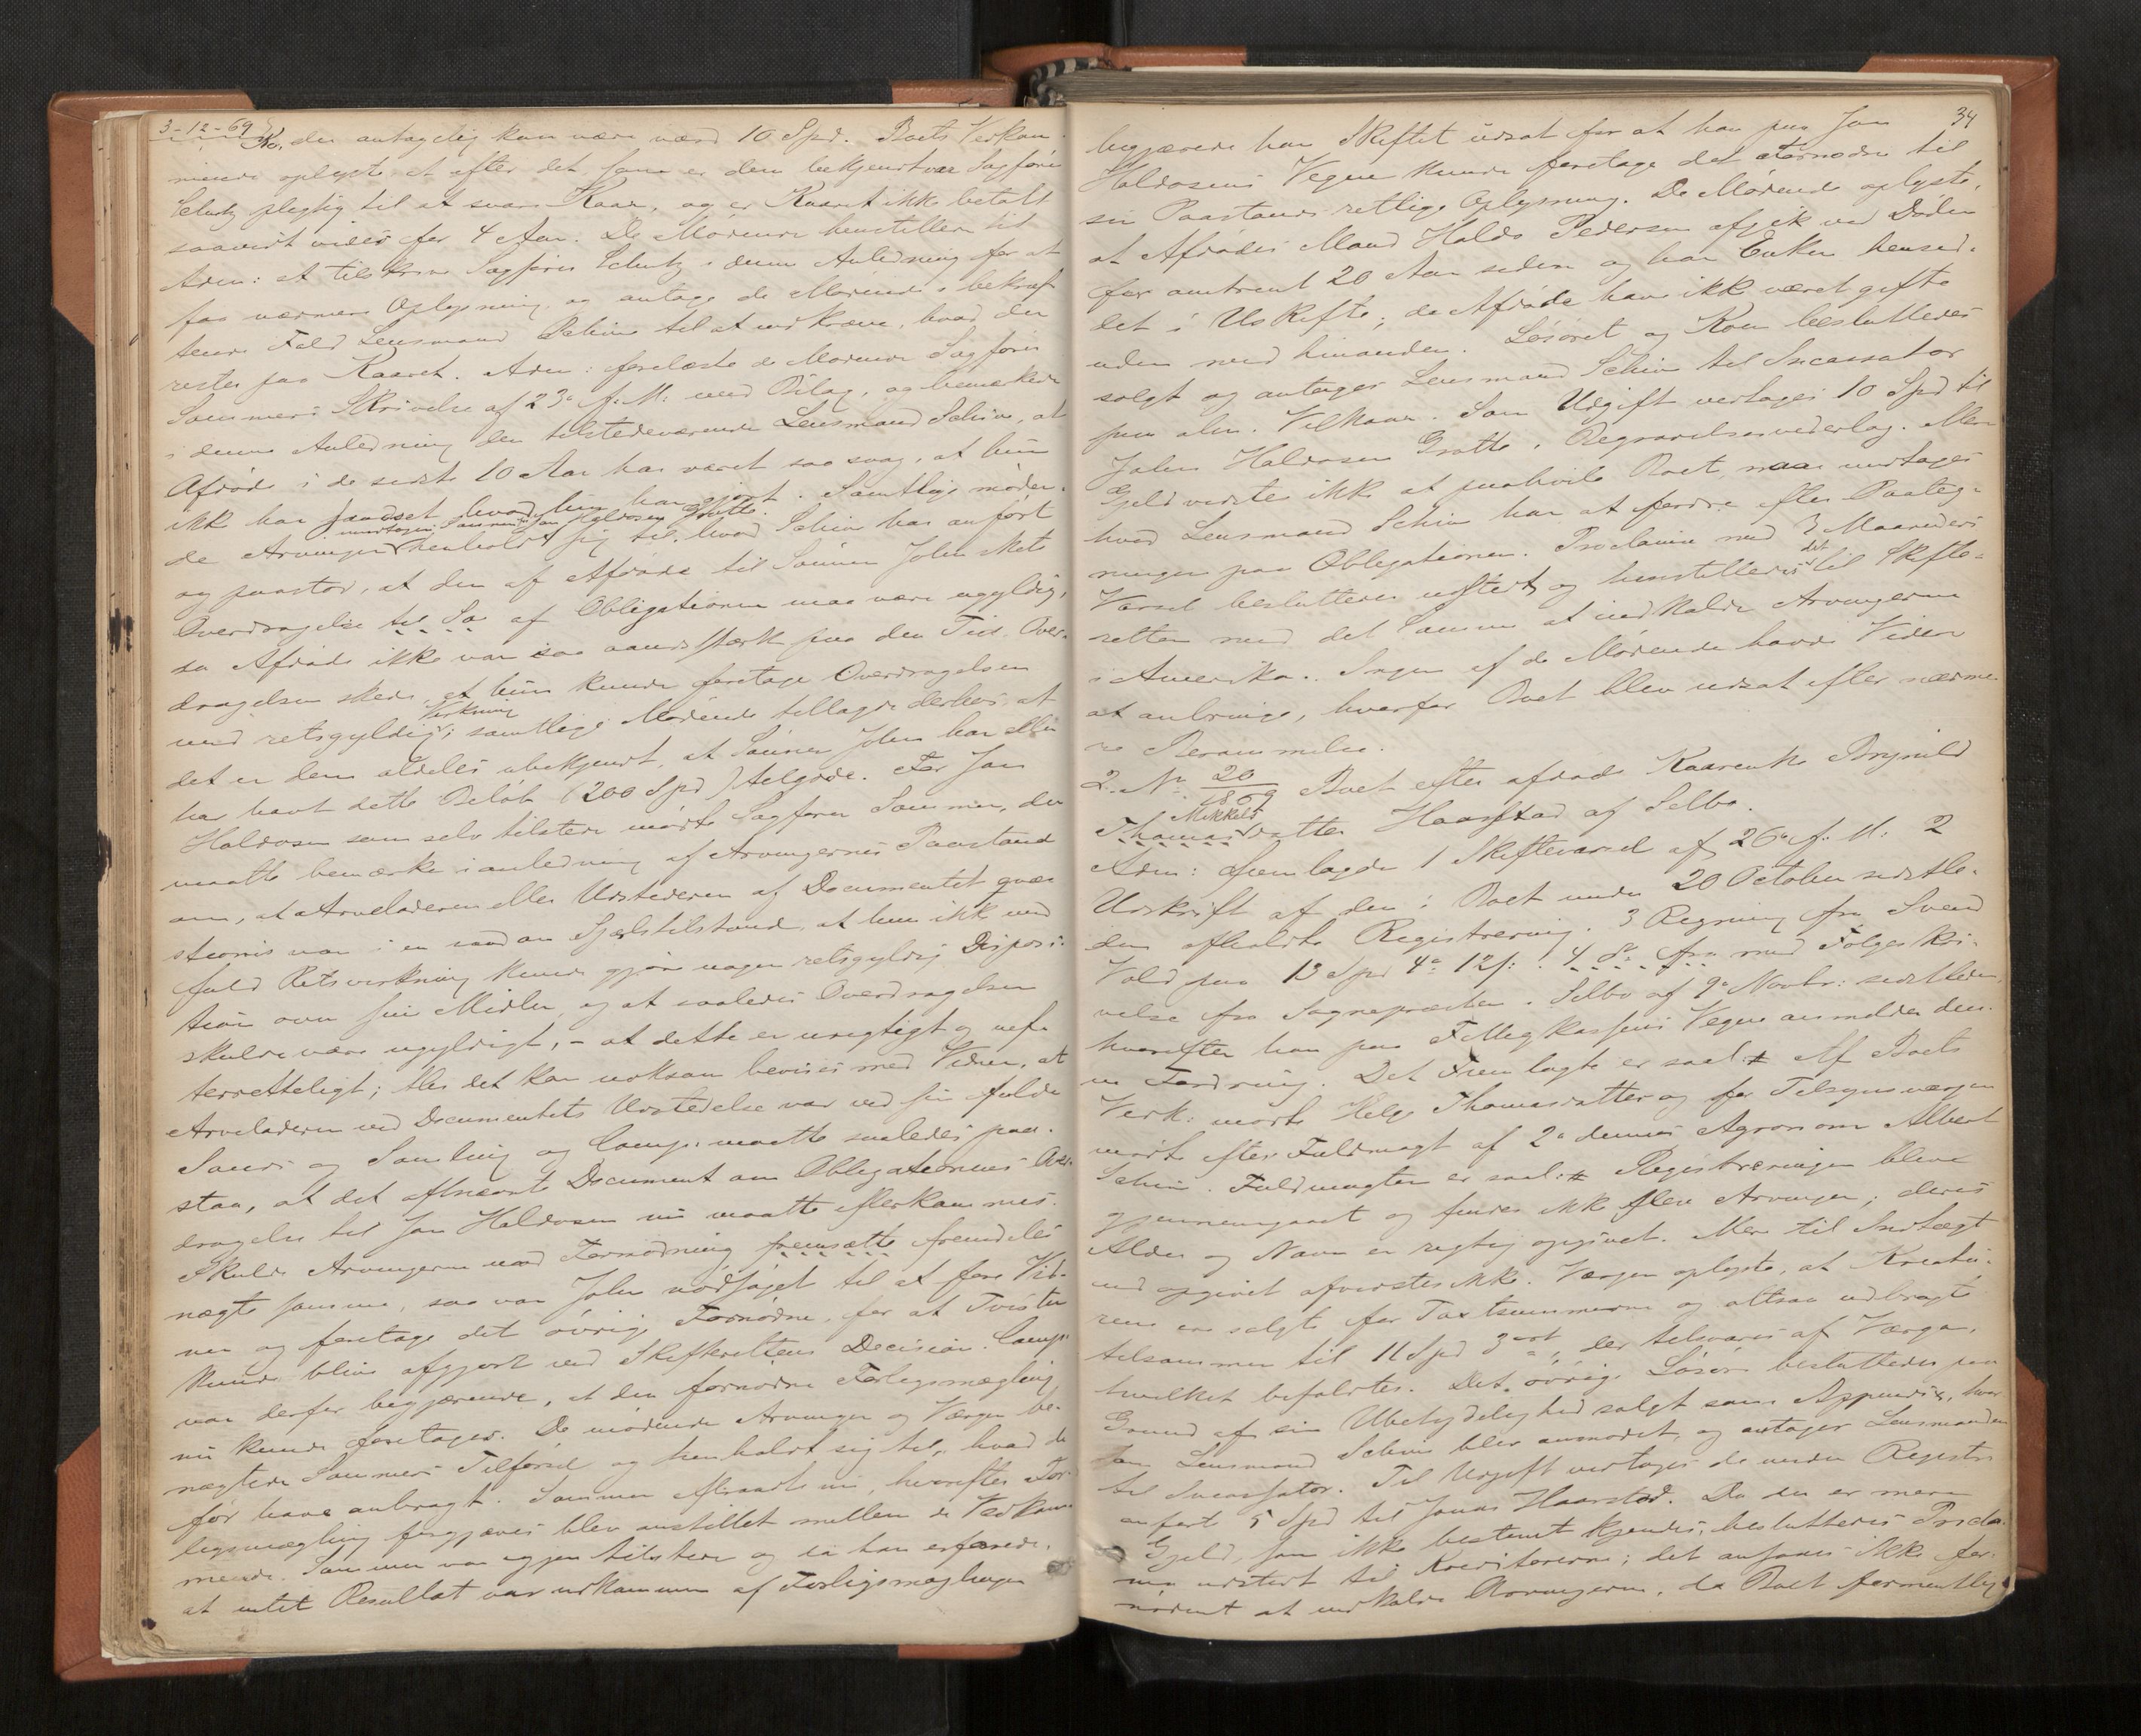 3-12-69
Ko, der antagelig kan være værd 10 Spd. Boets Vedkom-
mende oplyste at efter det som er dem bekjendt var Sagfører
Schutz pligtig til at svare Kaar, og er Kaaret ikke betalt
saavidt vides for 4 Aar. De Mødende henstillede til
Adm: at tilskrive Sagfører Schutz i denne Anledning for at
faa nærmere Oplysning, og antage de Mødende i bekræf-
tende Fald Lensmand Schive til at indkræve, hvad der
rester paa Kaaret. Adm: forelæste de Mødende Sagfører
Sommers Skrivelse af 23de f. M: med Bilag, og bemærkede
i denne Anledning den tilstedeværende Lensmand Schive, at
Afdøde i de sidste 10 Aar har været saa svag, at hun
ikke har sandset hvad hun har gjort. Samtlige møden-
undtagen Sønnen Jon Haldosen Grøtte
de Arvinger henholdt sig til hvad Schive har anført
og paastod, at den af Afdøde til Sønnen John skete
Overdragelse til Sø af Obligationen maa være ugyldig,
da Afdøde ikke var saa aandsstærk paa den Tid Over-
dragelsen skede, at hun kunde foretage Overdragelsen
Virkning
med retsgyldig; samtlige Mødende tillagde derhos at
det er dem aldeles ubekjendt, at Sønnen John har eller
har havt dette Beløb (200 Spd) tilgode. For Jon
Haldosen som selv tilstede mødte Sagfører Sommer, der
maatte bemærke i anledning af Arvingernes Paastand
om, at Arveladeren eller Udstederen af Documentet qvæ-
stionis var i en saadan Sjælstilstand, at hun ikke med
fuld Retsvirkning kunde gjøre nogen retsgyldig Disposi-
tion over sine Midler, og at saaledes Overdragelsen
skulde være ugyldigt, - at dette er urigtigt og uef-
terretteligt; thi det kan noksom bevises med Vidner, at
Arveladeren ved Documentets Udstedelse var ved sin fulde
Sands og Samling og Comp. maatte saaledes paa-
staa, at det aftnævnte Document om Obligationens Over-
dragelse til Jon Haldosen nu maatte efterkommes.
Skulde Arvingerne mod Formodning fremsætte fremdeles
nægte samme, saa var John nødsaget til at føre Vid-
ner og foretage det øvrige Fornødne, for at Tvisten
kunde blive afgjort ved Skifterettens Decision. Comp.
var derfor begjærende, at den fornødne Forligsmægling
nu kunde foretages. De mødende Arvinger og Værger be-
nægtede Sommers Tilførsel og henholdt sig til, hvad de
før have anbragt. Sommer aftraadte nu, hvorefter For-
ligsmægling forgjæves blev anstillet mellem de Vedkom-
mende. Sommer var igjen tilstede og da han erfarede,
at intet Resultat var udkommen af Forligsmæglingen
34
begjærede han Skiftet udsat for at han paa Jon
Haldosens Vegne kunde foretage det fornødne til
sin Paastands retlige Oplysning. De Mødende oplyste,
at Afdødes Mand Haldo Pedersen afgik ved Døden
for omtrent 20 Aar siden og har Enken hensid-
det i Uskifte; de Afdøde have ikke været gifte
uden med hinanden. Løsøret og Koen besluttedes
solgt og antoges Lensmand Schive til Incassator
paa alm. Vilkaar. Som Udgift vedtages 10 Spd til
John Haldosen Grøtte i Begravelsesvederlag. Mere
Gjeld vidstes ikke at paahvile Boet, naar undtages
hvad Lensmand Schive har at fordre efter Paateg-
ningen paa Obligationen. Proclama med 3 Maaneders
Varsel besluttedes udstedt, og henstilledes det til Skifte-
retten med det Samme at indkalde Arvingerne
i Amerika. Ingen af de Mødende havde Videre
at anbringe, hvorfor Boet blev udsat efter nærme-
re Berammelse.
2. No 20/1869 Boet efter afdøde Kaarenke Brynild
Mikkels
Thomasdatter Haarstad af Selbo.
Adm: fremlagde 1 Skiftevarsel af 26de f. M: 2
Udskrift af den i Boet under 20 October sidstle-
den afholdte Registrering. 3 Regning fra Svend
Vold paa 13 Spd 4 12 s: 4 do fra med Følgeskri-
velse fra Sognepræsten i Selbo af 9de Novbr: sidstleden
hvorefter han paa Fattigkassens Vegne anmelder den-
ne Fordring. Det Fremlagte er saal: # Af Boets
Vedk: mødte Helge Thomasdatter og for Tilsynsværgen
mødte efter Fuldmagt af 2de dennes Agronom Albert
Schive. Fuldmagten er saal: # Registreringen blev
gjennemgaaet og findes ikke flere Arvinger; deres
Alder og Navn er rigtig opgivet. Mere til Indtægt
end opgivet afvidstes ikke. Værgen oplyste, at Kreatu-
rene ere solgte for Taxtsummerne og altsaa udbragte
tilsammen til 11 Spd 3 ort, der tilsvares af Værgen,
hvilket befaldtes. Det øvrige Løsøre besluttedes paa
Grund af sin Ubetydelighed solgt som Appendix, hvor-
om Lensmand Schive blev anmodet, og antoges Lensmanden
til Incassator. Til Udgift vedtages de under Registre
anført 5 Spd til Jonas Haarstad. Da der er mere
Gjeld, som ikke bestemt kjendes, besluttedes Procla-
ma udstedt til Kreditorerne; det ansaaes ikke for-
nødent at indkalde Arvingerne, da Boet formentlig